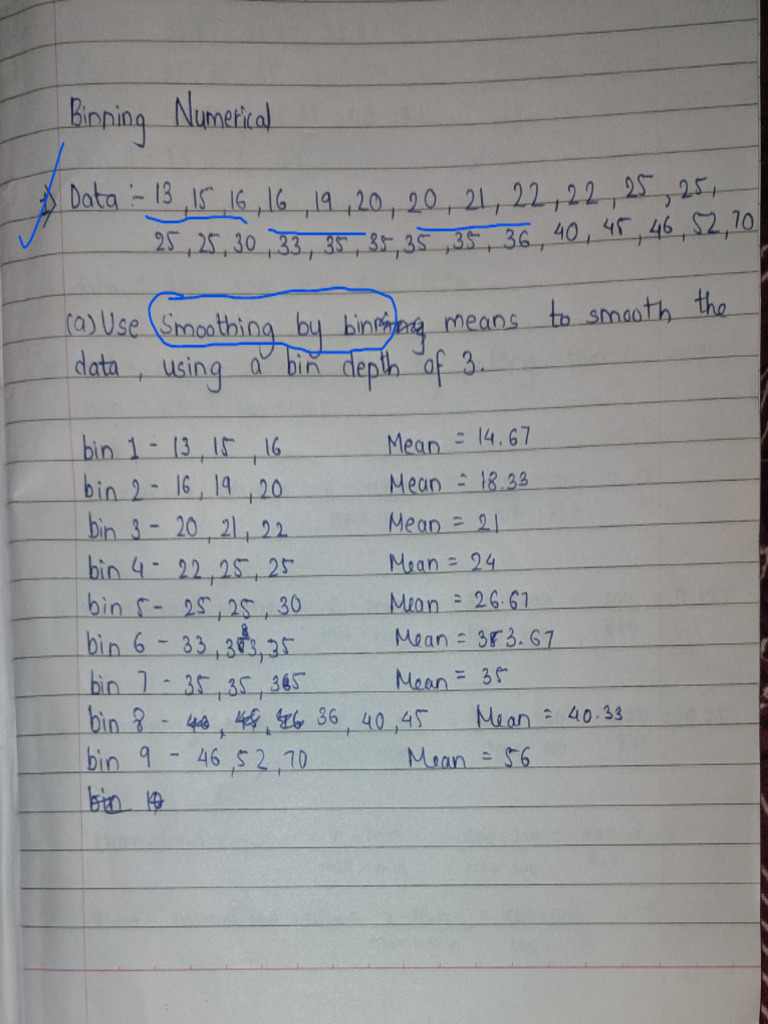 Binning Numerical
1) Data :- 13, 15, 16, 16, 19, 20, 20, 21, 22, 22, 25, 25,
25, 25, 30, 33, 35, 35, 35, 35, 36, 40, 45, 46, 52, 70
(a) Use Smoothing by bin means to smooth the
data, using a bin depth of 3.
bin 1 - 13, 15, 16 Mean = 14.67
bin 2 - 16, 19, 20 Mean = 18.33
bin 3 - 20, 21, 22 Mean = 21
bin 4 - 22, 25, 25 Mean = 24
bin 5 - 25, 25, 30 Mean = 26.67
bin 6 - 33, 33, 35 Mean = 33.67
bin 7 - 35, 35, 35 Mean = 35
bin 8 - 36, 40, 45 Mean = 40.33
bin 9 - 46, 52, 70 Mean = 56
bin 10